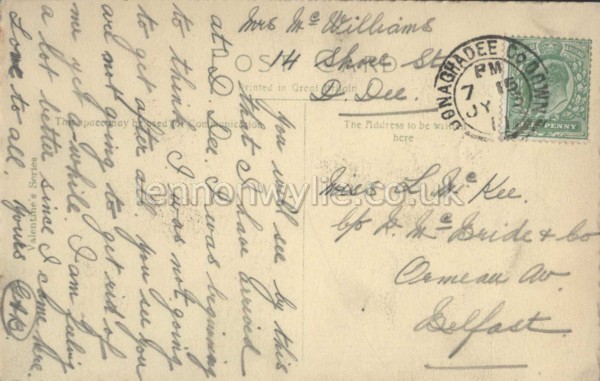 Mrs Mc Williams
14 Shore St
D. Dee.
POST CARD
Printed in Great Britain
This space may be used for Communication
The Address to be written here
Valentine's Series
DONAGHADEE CO. DOWN
PM
7
JY
HALFPENNY
Miss L. McKee.
c/o D. McBride & Co
Ormeau Av.
Belfast.
You will see by this
that I have arrived
at D. Dee. I was beginning
to think I was not going
to get after all. You see you
are not going to get rid of
me yet a while. I am feeling
a lot better since I came here.
Love to all. Yours
lennonwylie.co.uk